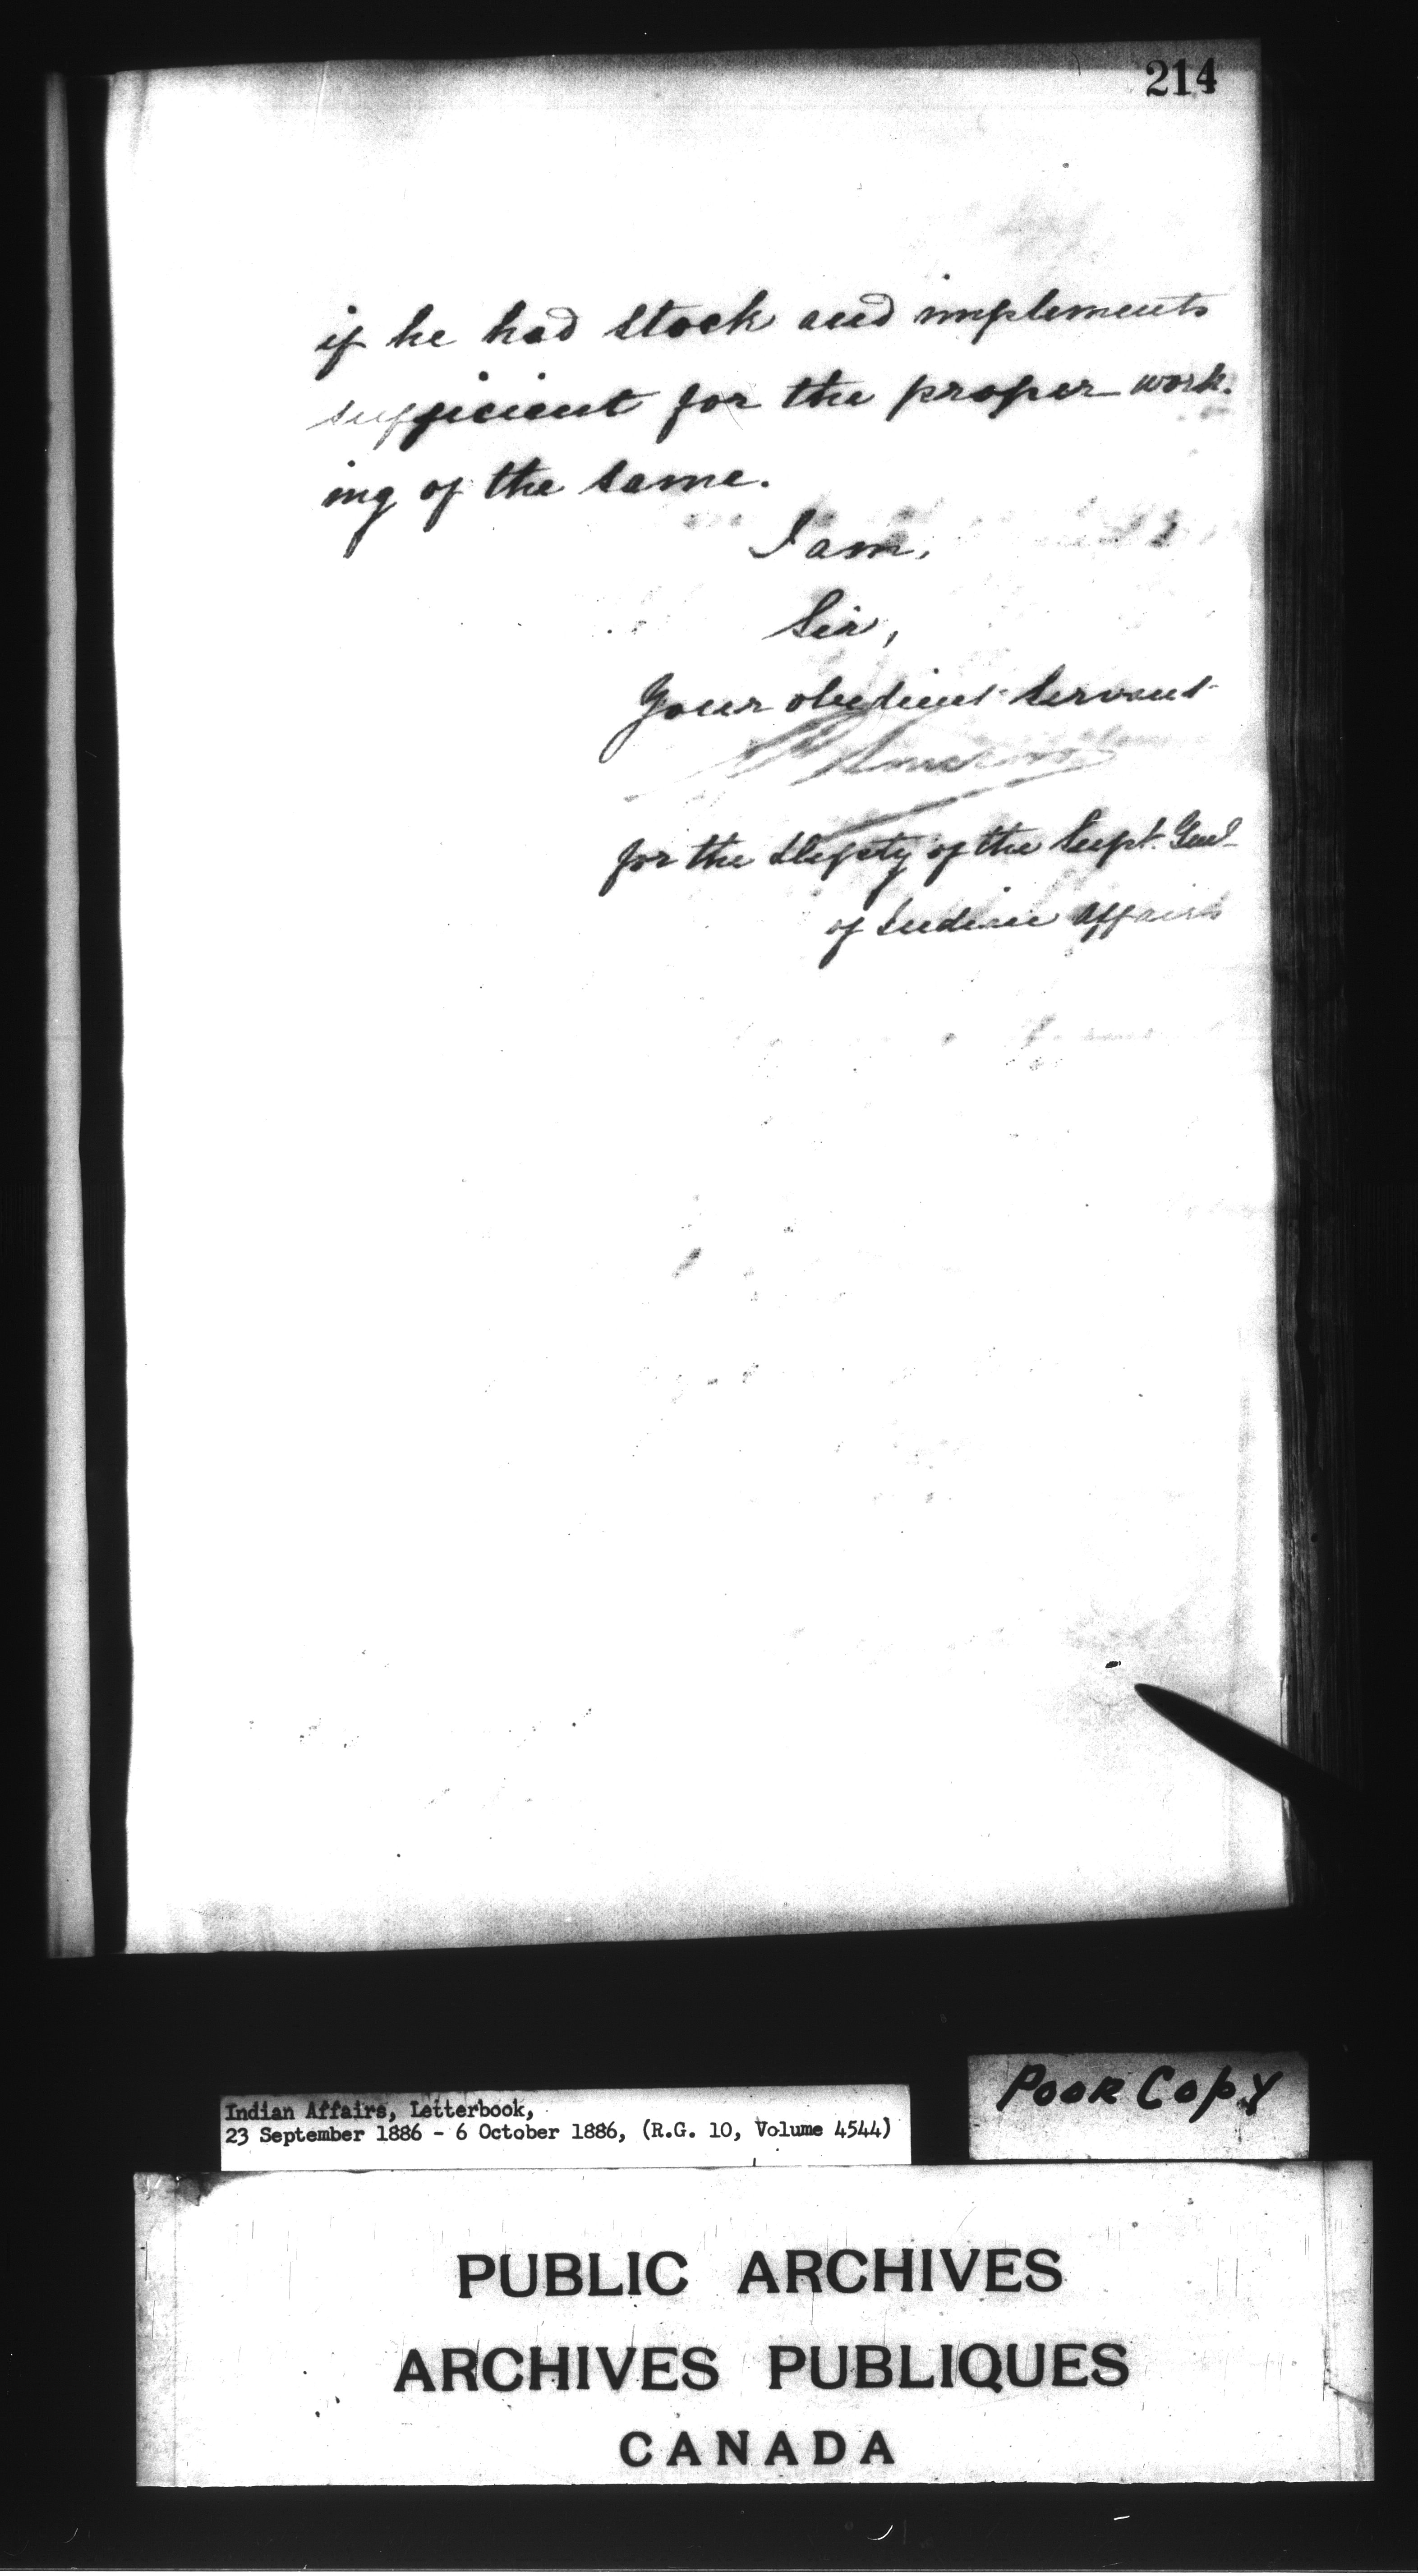 214
if he had stock and implements
sufficient for the proper work-
ing of the same.
I am,
Sir,
Your obedient Servant
for the Depty of the Supt. Genl
of Indian Affairs
Poor Copy
Indian Affairs, Letterbook,
23 September 1886 - 6 October 1886, (R.G. 10, Volume 4544)
PUBLIC ARCHIVES
ARCHIVES PUBLIQUES
CANADA